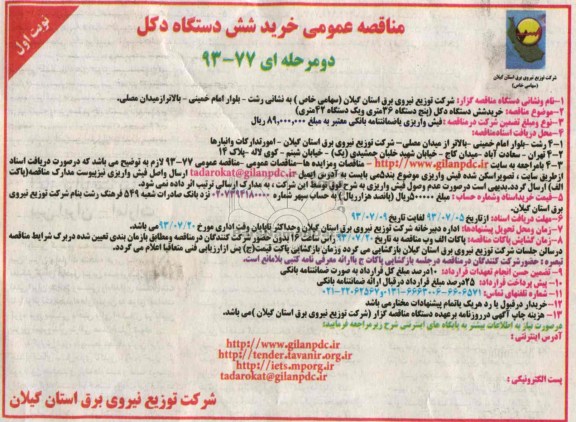 نوبت اول
مناقصه عمومی خرید شش دستگاه دکل
دومرحله ای ۷۷-۹۳
شرکت توزیع نیروی برق استان گیلان
(سهامی خاص)
۱-نام ونشانی دستگاه مناقصه گزار: شرکت توزیع نیروی برق استان گیلان (سهامی خاص) به نشانی رشت - بلوار امام خمینی - بالاترازمیدان مصلی.
۲-موضوع مناقصه: خریدشش دستگاه دکل (پنج دستگاه ۳۶متری ویک دستگاه ۴۲متری)
۳-نوع ومبلغ تضمین شرکت در مناقصه: فیش واریزی یاضمانتنامه بانکی معتبر به مبلغ ۸۹,۰۰۰,۰۰۰ ریال
۴-محل دریافت اسنادمناقصه:
۴-۱ رشت -بلوار امام خمینی -بالاتر از میدان مصلی- شرکت توزیع نیروی برق استان گیلان - امورتدارکات وانبارها
۴-۲ تهران - سعادت آباد -میدان کاج - خیابان شهید علیان جمشیدی (یک) - خیابان ششم - کوی لاله -پلاک ۱۴
۴-۳ بامراجعه به سایت http://www.gilanpdc.ir - مناقصات ومزایده ها-مناقصات عمومی -مناقصه عمومی ۷۷-۹۳ لازم به توضیح می باشد که درصورت دریافت اسناد
ازطریق سایت ، تصویراسکن شده فیش واریزی موضوع بند۵می بایست به آدرس ایمیل tadarokat@gilanpdc.ir ارسال واصل فیش واریزی نیزپیوست مدارک مناقصه(پاکت
الف) ارسال گردد.بدیهی است درصورت عدم وصول فیش واریزی به شرح فوق توسط این شرکت ، به مدارک ارسالی ترتیب اثر داده نمی شود.
۵- قیمت خریداسناد وشماره حساب: مبلغ ۵۰۰۰۰۰ریال (پانصد هزارریال) به حساب سپهر شماره ۰۲۰۷۳۹۴۱۸۰۰۰۰ نزد بانک صادرات شعبه ۵۴۹ فرهنگ رشت بنام شرکت توزیع نیروی
برق استان گیلان.
۶- مهلت دریافت اسناد: ازتاریخ ۹۳/۰۷/۰۵ لغایت تاریخ ۹۳/۰۷/۰۹
۷- زمان ومحل تحویل پیشنهادها: اداره دبیرخانه شرکت توزیع نیروی برق استان گیلان وحداکثر تاپایان وقت اداری مورخ ۹۳/۰۷/۲۰ می باشد.
۸- زمان گشایش پاکات مناقصه: پاکات الف وب مناقصه به تاریخ ۹۳/۰۷/۲۰ رأس ساعت ۱۶ بدون حضور شرکت کنندگان در مناقصه ومطابق بازمان بندی تعیین شده دربرگ شرایط مناقصه
درسالن جلسات شرکت توزیع نیروی برق استان گیلان بازگشایی می گردد زمان بازگشایی پاکت قیمت(ج) پس ازارزیابی فنی متعاقبا اعلام می گردد.
تبصره: حضورشرکت کنندگان درمناقصه درجلسه بازگشایی پاکات ج باارائه معرفی نامه کتبی بلامانع است.
۹- تضمین حسن انجام تعهدات قرارداد: ۱۰درصد مبلغ کل قرارداد به صورت ضمانتنامه بانکی
۱۰- پیش پرداخت قرارداد: ۲۵درصد مبلغ قرارداد درقبال ارائه ضمانتنامه بانکی
۱۱- شماره تلفنهای تماس: ۶۶۰۶۵۷۱-۶۶۶۳۰۰۶-۰۱۳ و ۲۲۰۶۲۵۶۷-۰۲۱
۱۲- خریدار درقبول یا رد هریک یاتمام پیشنهادات مختارمی باشد
۱۳- هزینه چاپ آگهی درروزنامه برعهده دستگاه مناقصه گزار (شرکت توزیع نیروی برق استان گیلان )می باشد.
درصورت نیاز به اطلاعات بیشتر به پایگاه های اینترنتی شرح زیرمراجعه فرمایید:
آدرس اینترنتی :
http://www.gilanpdc.ir
http://tender.tavanir.org.ir
http://iets.mporg.ir
پست الکترونیکی : tadarokat@gilanpdc.ir
شرکت توزیع نیروی برق استان گیلان